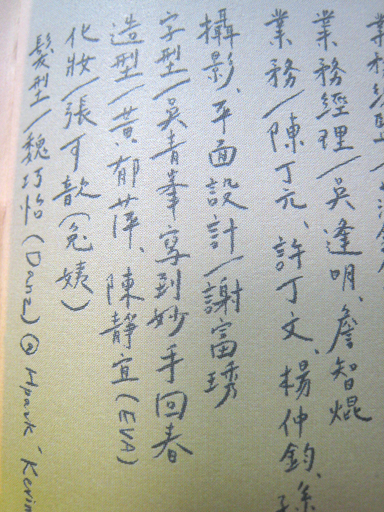 業務經理/吳逢明、詹智焜
業務/陳丁元、許丁文、楊仲鈞、孫
攝影、平面設計/謝富琇
字型/吳青峯寫到妙手回春
造型/黃郁萍、陳靜宜(EVA)
化妝/張可歆(兔姨)
髮型/魏巧怡(Danz)@Hpark Kevin